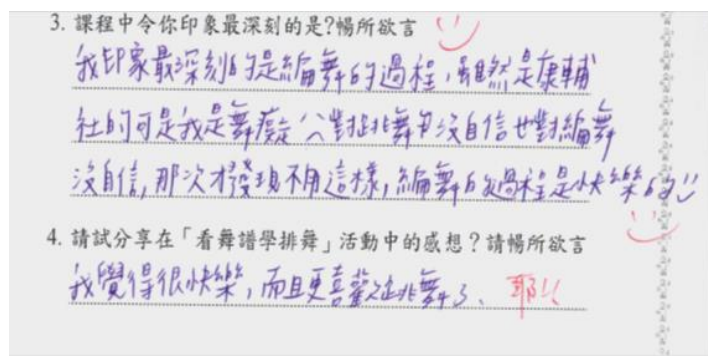 3. 課程中令你印象最深刻的是?暢所欲言
我印象最深刻的是編舞的過程,雖然是康輔
社的可是我是舞癡 對跳舞 沒自信也對編舞
沒自信,那次才發現不用這樣,編舞的過程是快樂的
4. 請試分享在「看舞譜學排舞」活動中的感想?請暢所欲言
我覺得很快樂,而且更喜歡跳舞了、耶!!